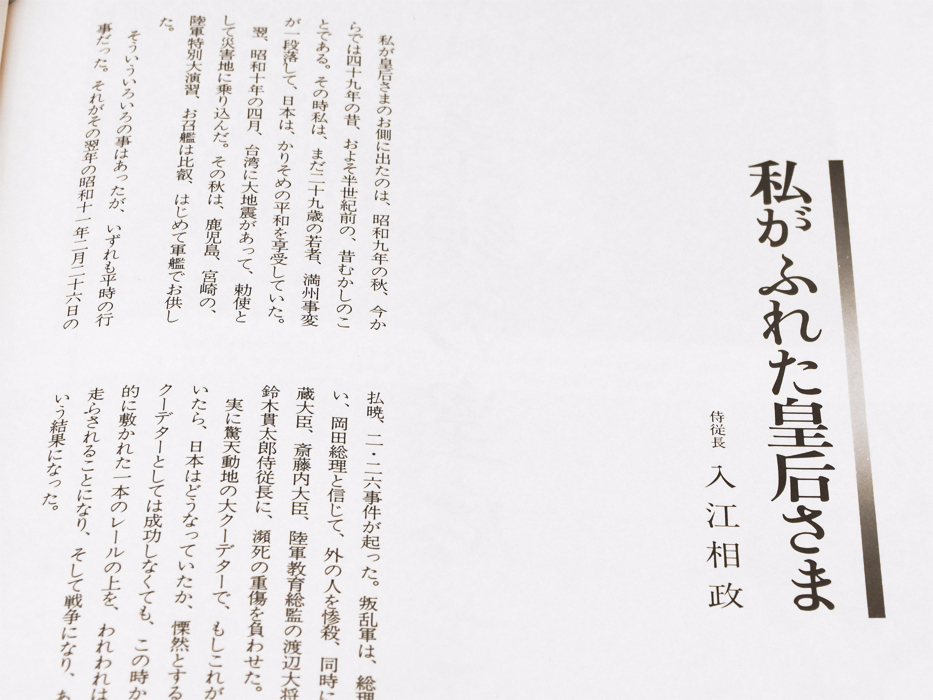 私がふれた皇后さま
侍従長 入江相政
私が皇后さまのお側に出たのは、昭和九年の秋、今か
らでは四十九年の昔、およそ半世紀前の、昔むかしのこ
とである。その時私は、まだ二十九歳の若者、満州事変
が一段落して、日本は、かりそめの平和を享受していた。
翌、昭和十年の四月、台湾に大地震があって、勅使と
して災害地に乗り込んだ。その秋は、鹿児島、宮崎の、
陸軍特別大演習、お召艦は比叡、はじめて軍艦でお供し
た。
そういういろいろの事はあったが、いずれも平時の行
事だった。それがその翌年の昭和十一年二月二十六日の
払暁、二・二六事件が起った。叛乱軍は、総理
い、岡田総理と信じて、外の人を惨殺、同時に
蔵大臣、斎藤内大臣、陸軍教育総監の渡辺大将
鈴木貫太郎侍従長に、瀕死の重傷を負わせた。
実に驚天動地の大クーデターで、もしこれが
いたら、日本はどうなっていたか、慄然とする
クーデターとしては成功しなくても、この時か
的に敷かれた一本のレールの上を、われわれは
走らされることになり、そして戦争になり、あ
いう結果になった。